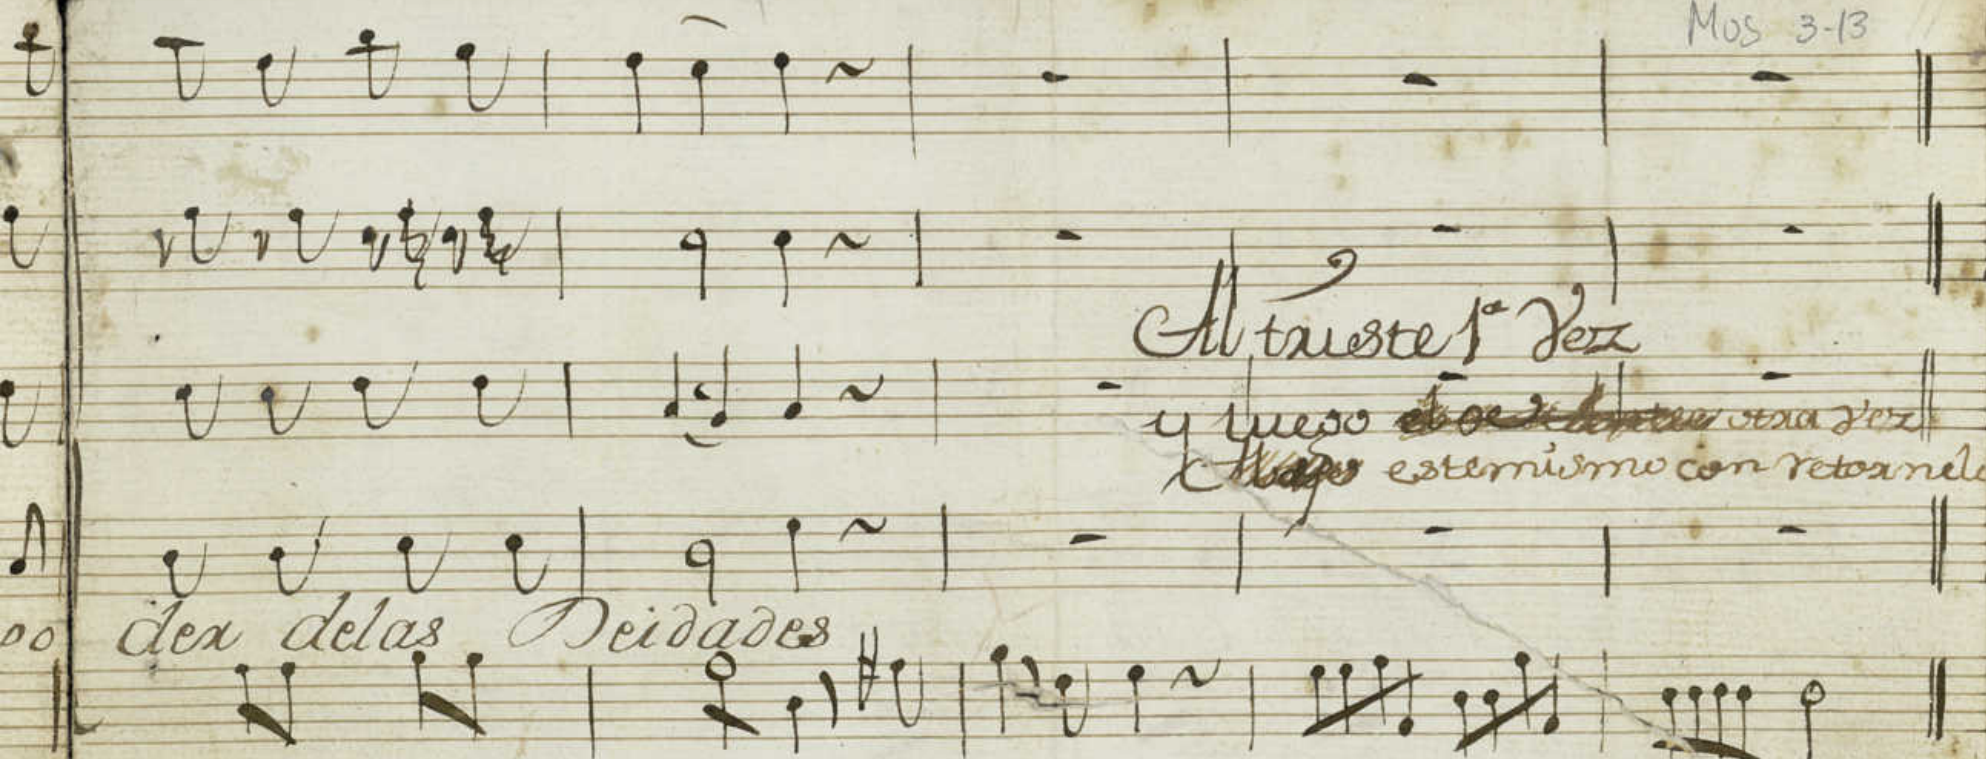 Mus 3-13
Al triste 1ª Vez
y luego otra vez
este mismo con retornelo
der delas Deidades